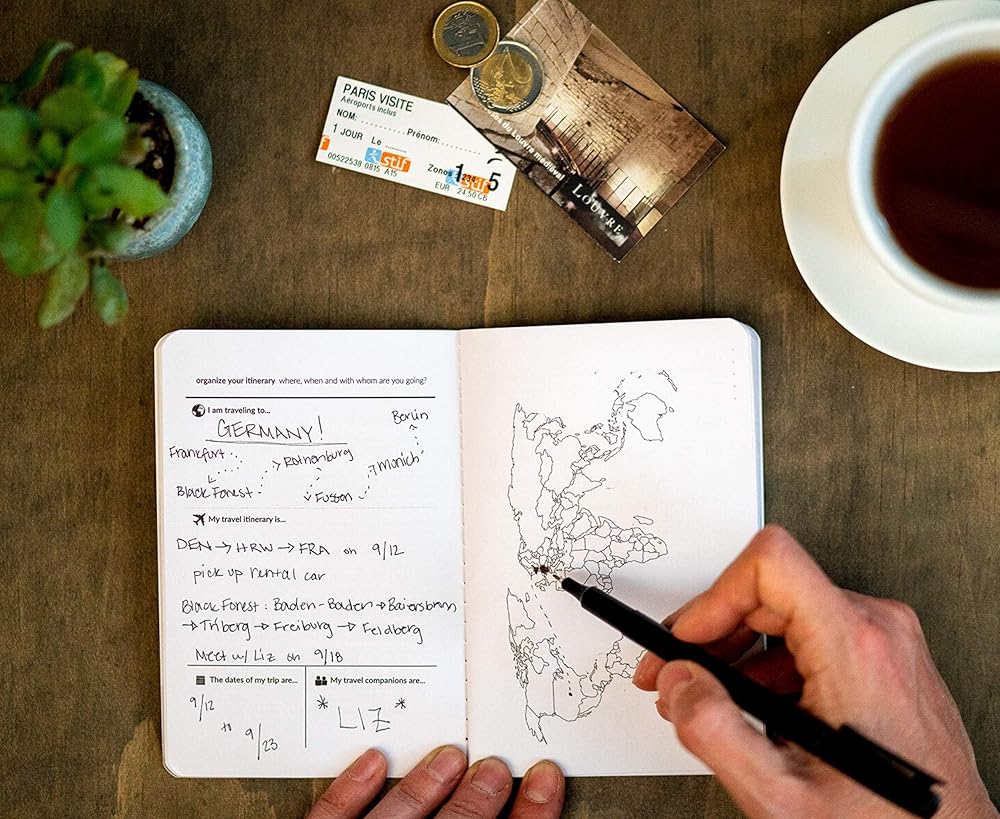 PARIS VISITE
Aéroports inclus
NOM: .......... Prénom: ..........
1 JOUR Le ........
stif
Zones 1 5
00522538 0815 A15
stif
EUR 24.50 CB
du Louvre médiéval
LOUVRE
organize your itinerary where, when and with whom are you going?
I am traveling to...
GERMANY!
Berlin
Frankfurt
Rothenburg
Munich
Black Forest
Fussen
My travel itinerary is...
DEN → HRW → FRA on 9/12
pick up rental car
Black Forest: Baden-Baden → Baiersbronn
→ Triberg → Freiburg → Feldberg
Meet w/ Liz on 9/18
The dates of my trip are...
9/12
to 9/23
My travel companions are...
* LIZ *